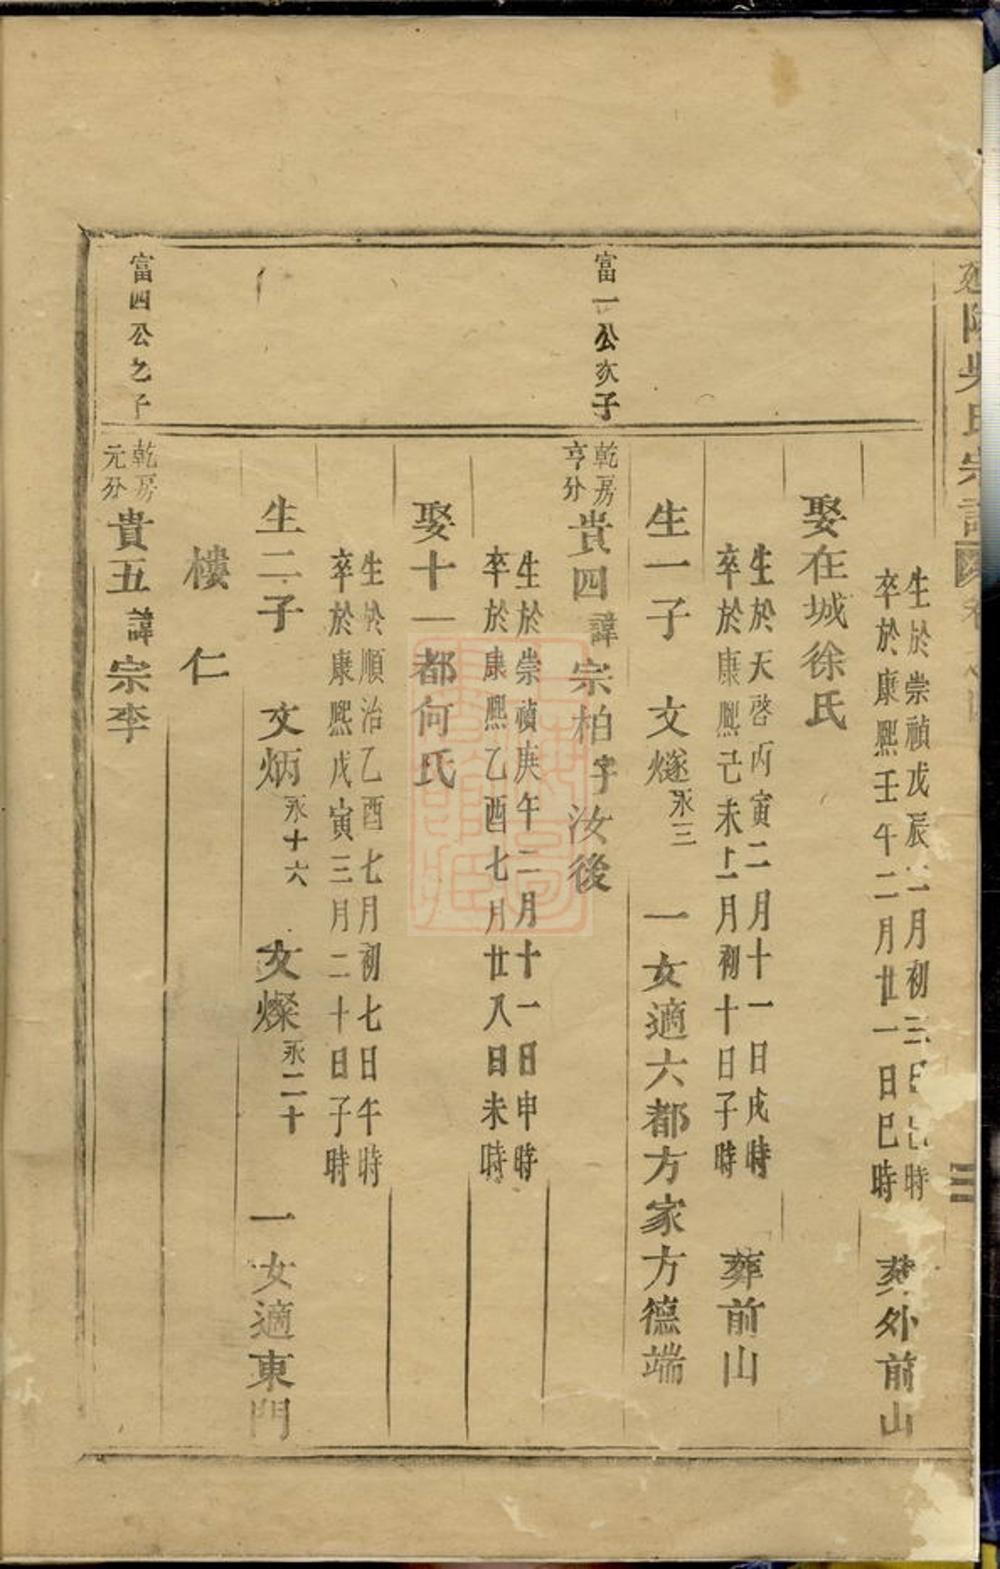 延陵吳氏宗譜
生於崇禎戊辰二月初三日時
卒於康熙壬午二月廿一日巳時
葬外前山
娶在城徐氏
生於天啓丙寅二月十一日戌時
卒於康熙己未十二月初十日子時
葬前山
生一子 文燧永三 一女適六都方家方德端
富一公次子
乾房
亨分
貴四諱宗柏字汝後
生於崇禎庚午二月十一日申時
卒於康熙乙酉七月廿八日未時
娶十一都何氏
生於順治乙酉七月初七日午時
卒於康熙戊寅三月二十日子時
生二子 文炳永十六 文燦永二十 一女適東門
樓仁
富四公之子
乾房
元分
貴五諱宗李